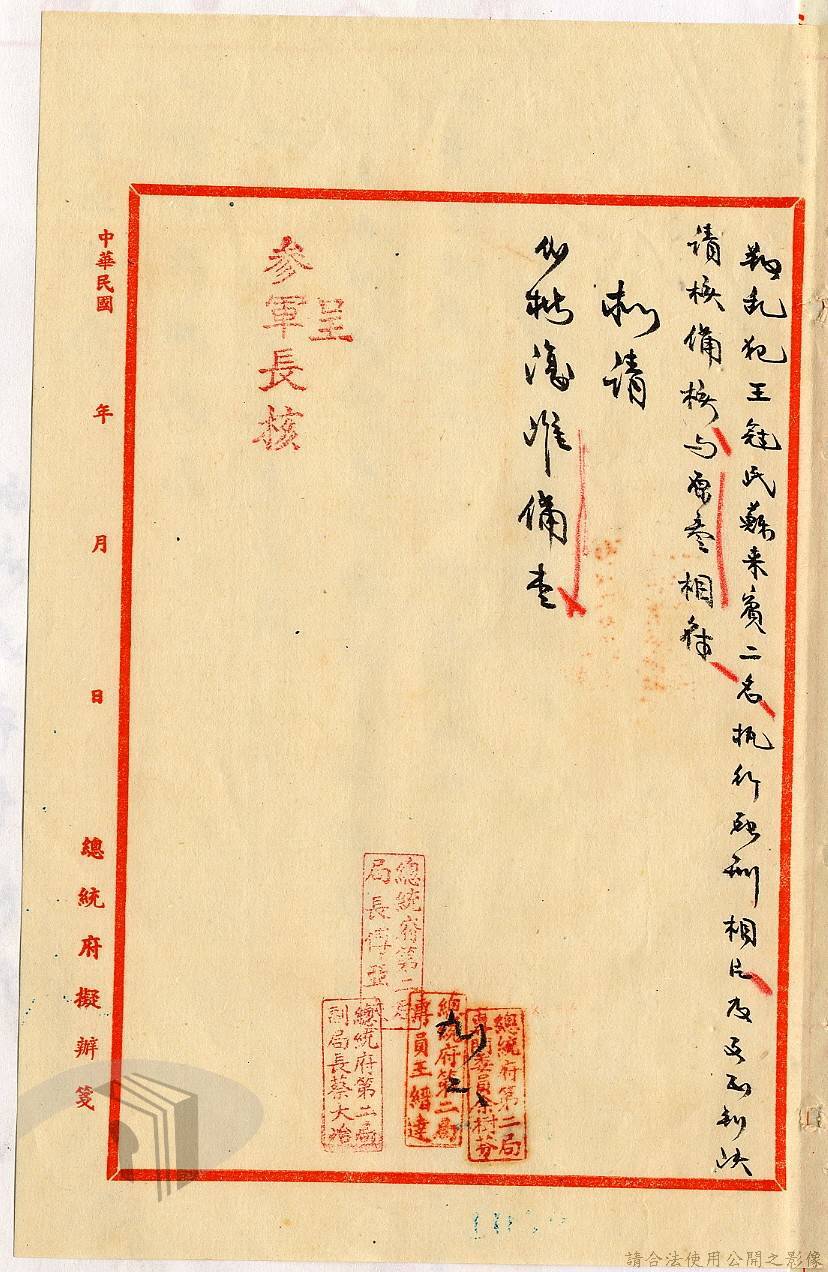 叛乱犯王冠民蘇来賓二名执行死刑相片及更正判决
請核備核与原卷相符
擬請
代批復准備查
呈
参軍長核
總統府第二局
專門委員
總統府第二局
專員王縉達
九
二
總統府第二局
局長傅亞
總統府第二局
副局長蔡大冶
中華民國 年 月 日
總統府擬辦箋
請合法使用公開之影像